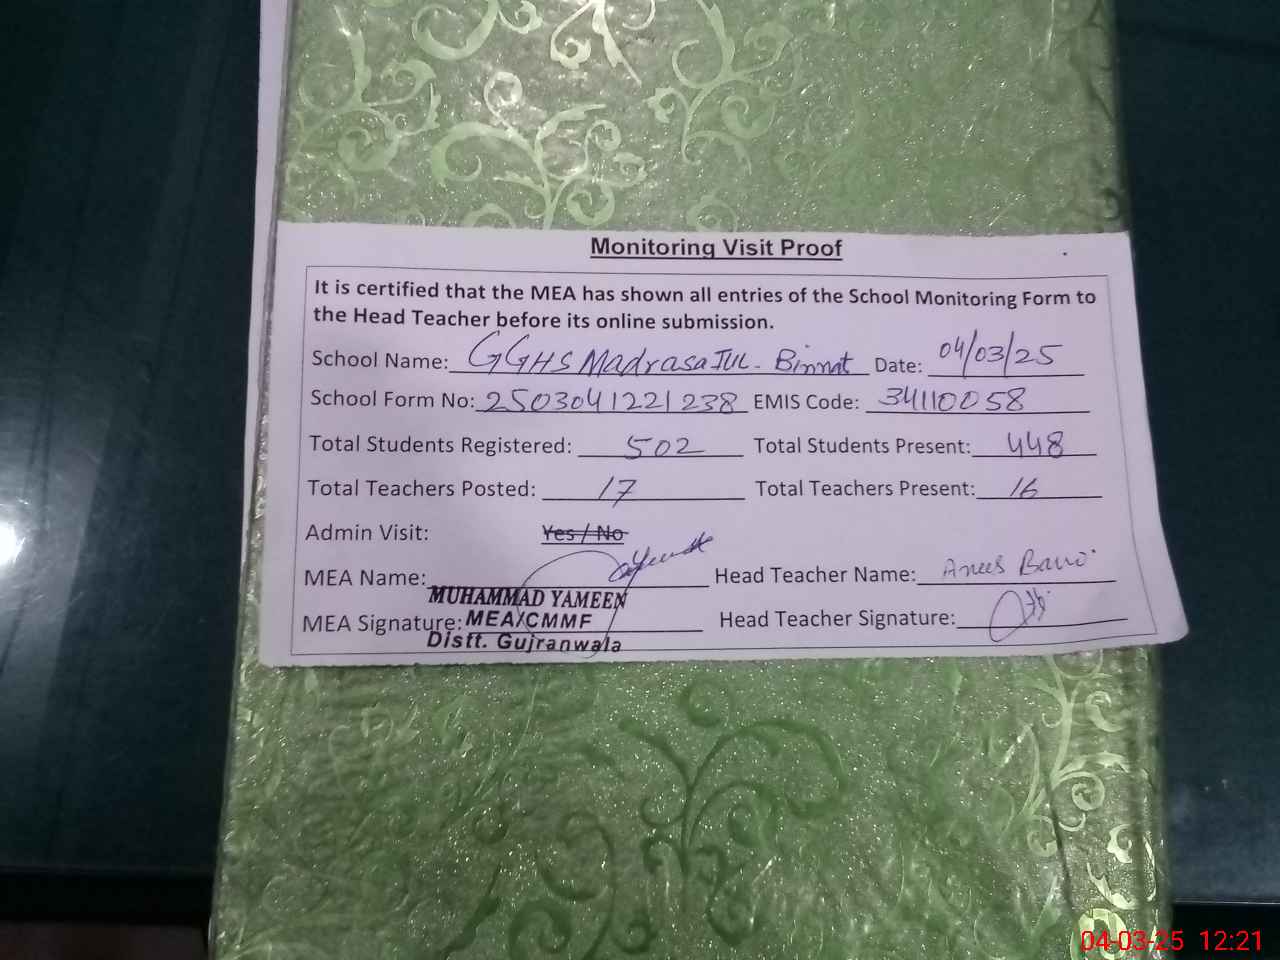 Monitoring Visit Proof
It is certified that the MEA has shown all entries of the School Monitoring Form to
the Head Teacher before its online submission.
School Name: GGHS Madrasa TUL - Binnat Date: 04/03/25
School Form No: 2503041221238 EMIS Code: 34110058
Total Students Registered: 502 Total Students Present: 448
Total Teachers Posted: 17 Total Teachers Present: 16
Admin Visit: Yes / No
MEA Name: Head Teacher Name: Anees Bano
MUHAMMAD YAMEEN
MEA Signature: MEA/CMMF Head Teacher Signature:
Distt. Gujranwala
04-03-25 12:21